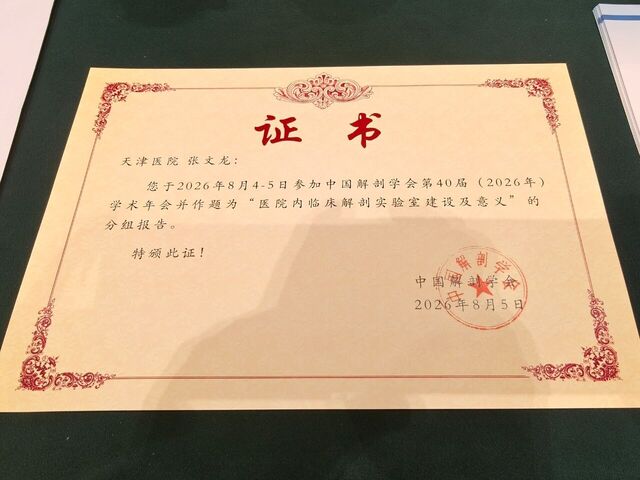 证 书
天津医院 张文龙：
您于2026年8月4-5日参加中国解剖学会第40届（2026年）
学术年会并作题为“医院内临床解剖实验室建设及意义”的
分组报告。
特颁此证！
中国解剖学会
中国解剖学会
2026年8月5日